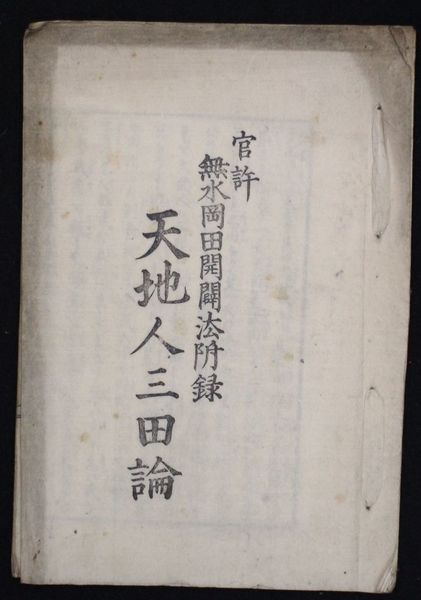 官許
無水岡田開闢法附録
天地人三田論